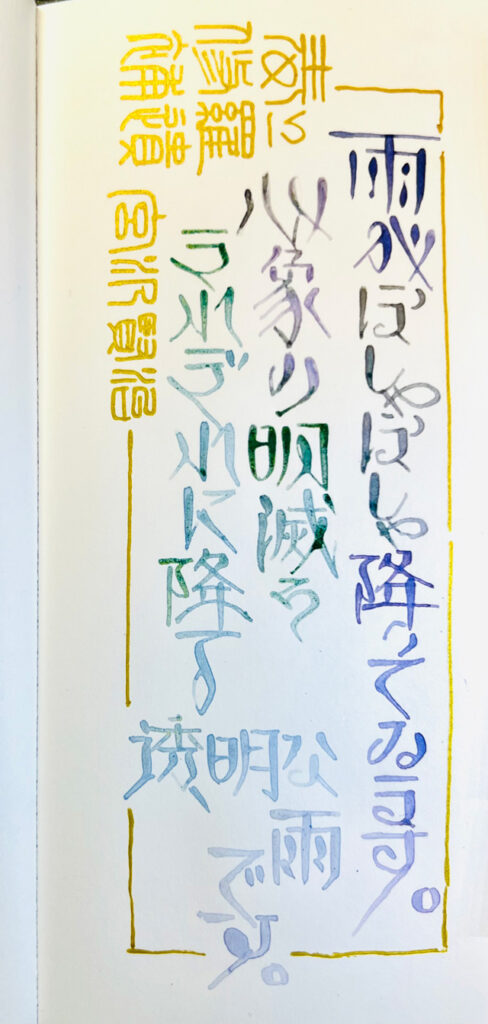 雨がぽしゃぽしゃ降ってゐます。
心象の明滅を
きれぎれに降る
透明な
雨
です。
春と
修羅
補遺
宮沢賢治